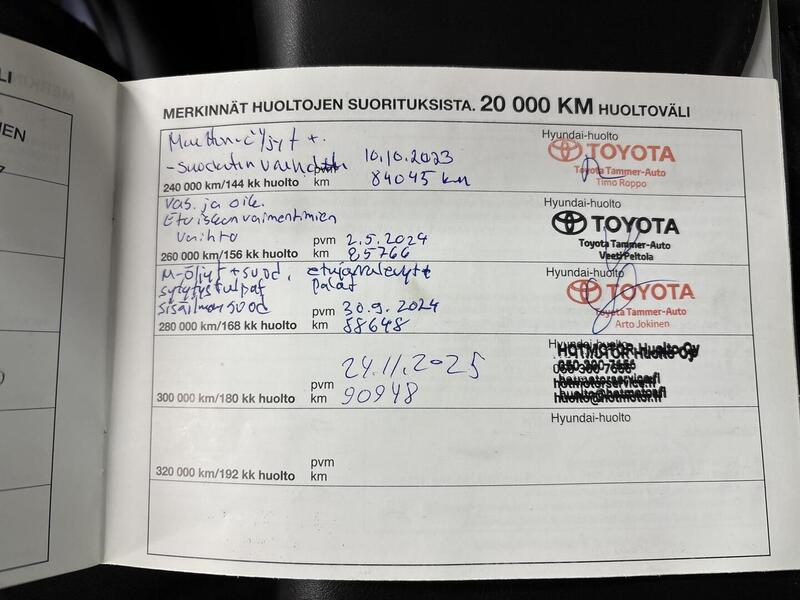 MERKINNÄT HUOLTOJEN SUORITUKSISTA. 20 000 KM HUOLTOVÄLI
Moottoriöljyt +
-suodattimen vaihdot 10.10.2023
pvm
240 000 km/144 kk huolto km 84045 km
Hyundai-huolto
TOYOTA
Toyota Tammer-Auto
Timo Roppo
Vas. ja oik.
Etuiskunvaimentimien
vaihto pvm 2.5.2024
260 000 km/156 kk huolto km 85766
Hyundai-huolto
TOYOTA
Toyota Tammer-Auto
Veeti Peltola
M-öljyt + suod, etujarrulevyt +
sytytystulpat palat
sisäilman suod pvm 30.9.2024
280 000 km/168 kk huolto km 88648
Hyundai-huolto
TOYOTA
Toyota Tammer-Auto
Arto Jokinen
pvm 24.11.2025
300 000 km/180 kk huolto km 90948
Hyundai-huolto
HOTMOTOR Huolto Oy
050 300 7656
hotmotorservice.fi
huolto@hotmotor.fi
Hyundai-huolto
pvm
320 000 km/192 kk huolto km
MERKIN